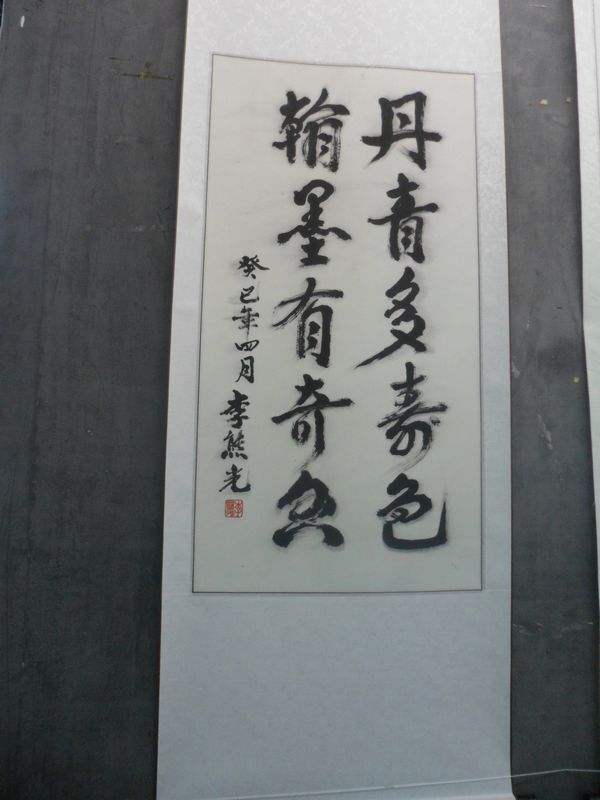 丹青多寿色
翰墨有奇
癸巳年四月 李熊光